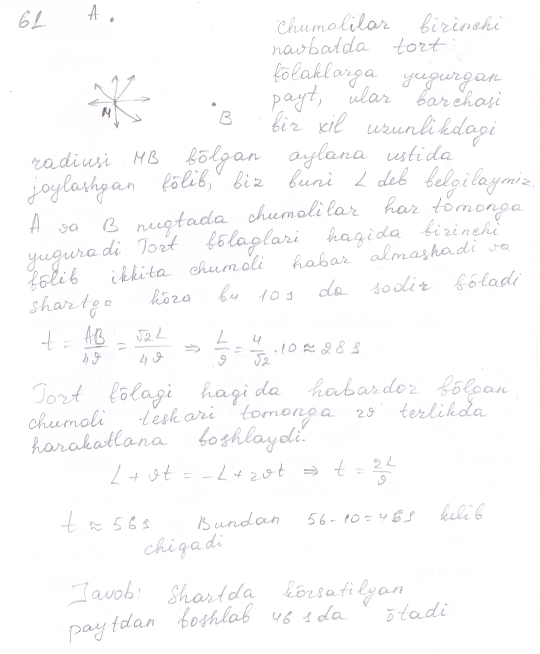 61 A. Chumolilar birinchi
navbatda tort
bōlaklarga yugurgan
payt, ular barchasi
M B bir xil uzunlikdagi
radiusi MB bōlgan aylana ustida
joylashgan bōlib, biz buni L deb belgilaymiz.
A va B nuqtada chumolilar har tomonga
yuguradi Tort bōlaglari haqida birinchi
bōlib ikkita chumoli habar almashadi va
shartga kōra bu 10s da sodir bōladi
t = AB/4ϑ = √2L/4ϑ ⇒ L/ϑ = 4/√2 · 10 ≈ 28s
Tort bōlagi haqida habardor bōlgan
chumoli teskari tomonga 2ϑ tezlikda
harakatlana boshlaydi.
L + ϑt = -L + 2ϑt ⇒ t = 2L/ϑ
t ≈ 56s Bundan 56-10=46s kelib
chiqadi
Javob: Shartda kōrsatilgan
paytdan boshlab 46 s da ōtadi